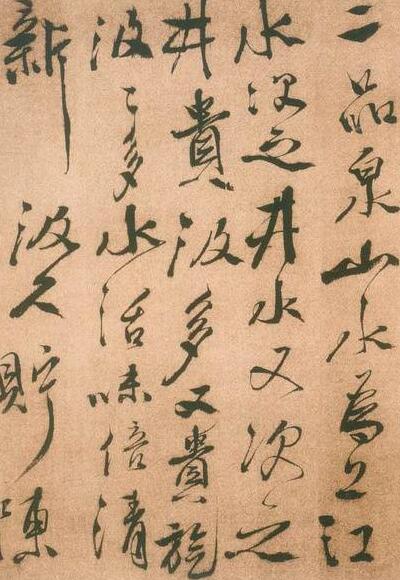 二品泉山水為上江
水次之井水又次之
井貴汲多又貴旋
汲〻多水活味倍清
新汲久貯陳